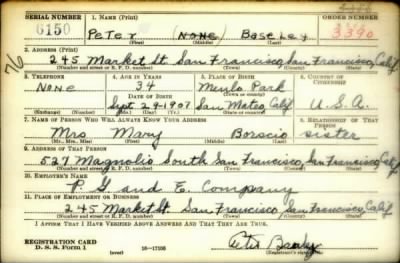 SERIAL NUMBER 1. NAME (Print) ORDER NUMBER
6150 Peter (None) Baseley 3390
(First) (Middle) (Last)
76
2. ADDRESS (Print)
245 Market St. San Francisco, San Francisco, Calif
(Number and street or R. F. D. number) (Town) (County) (State)
3. TELEPHONE 4. AGE IN YEARS 5. PLACE OF BIRTH 6. COUNTRY OF CITIZENSHIP
None 34 Menlo Park
DATE OF BIRTH (Town or county)
Sept 29-1907 San Mateo, Calif U.S.A.
(Mo.) (Day) (Yr.) (State or country)
7. NAME OF PERSON WHO WILL ALWAYS KNOW YOUR ADDRESS 8. RELATIONSHIP OF THAT PERSON
Mrs Mary Borscio sister
(Mr., Mrs., Miss) (First) (Middle) (Last)
9. ADDRESS OF THAT PERSON
527 Magnolia South San Francisco, San Francisco, Calif
(Number and street or R. F. D. number) (Town) (County) (State)
10. EMPLOYER'S NAME
P. G and E. Company
11. PLACE OF EMPLOYMENT OR BUSINESS
245 Market St. San Francisco, San Francisco, Calif
(Number and street or R. F. D. number) (Town) (County) (State)
I AFFIRM THAT I HAVE VERIFIED ABOVE ANSWERS AND THAT THEY ARE TRUE.
REGISTRATION CARD
D. S. S. Form 1 (over) 16-17105 Peter Basely
(Registrant's signature)